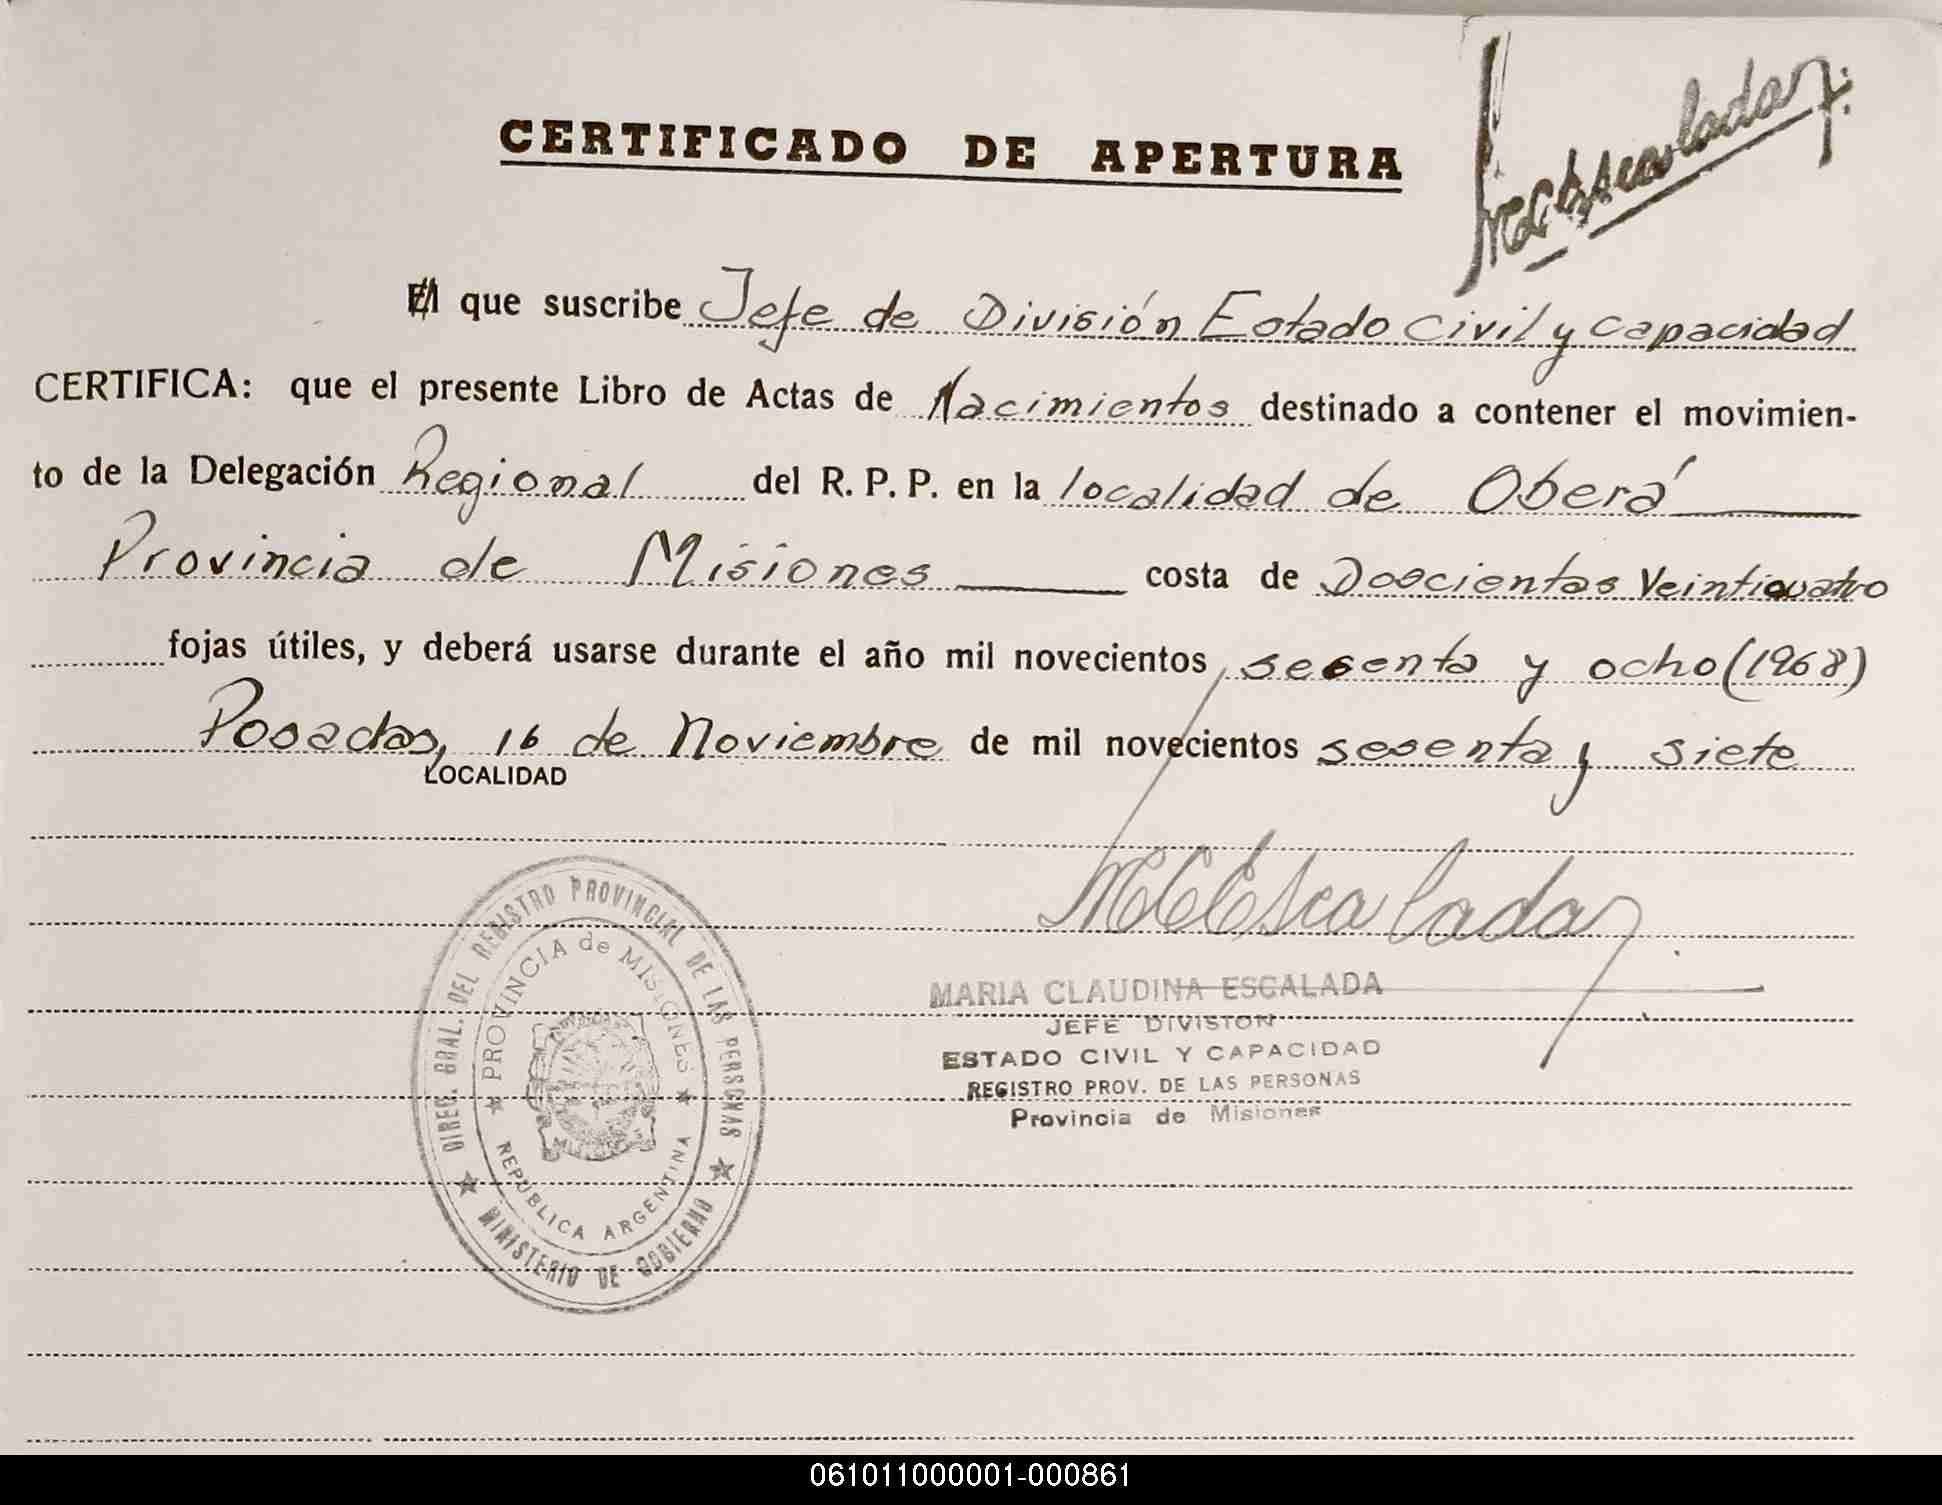 MCEscalada
CERTIFICADO DE APERTURA
El que suscribe Jefe de División Estado Civil y Capacidad
CERTIFICA: que el presente Libro de Actas de Nacimientos destinado a contener el movimien-
to de la Delegación Regional del R. P. P. en la localidad de Oberá
Provincia de Misiones costa de Doscientas Veinticuatro
fojas útiles, y deberá usarse durante el año mil novecientos sesenta y ocho (1968)
Posadas, 16 de Noviembre de mil novecientos sesenta y siete
LOCALIDAD
MCEscalada
MARIA CLAUDINA ESCALADA
JEFE DIVISION
ESTADO CIVIL Y CAPACIDAD
REGISTRO PROV. DE LAS PERSONAS
Provincia de Misiones
DIREC. GRAL. DEL REGISTRO PROVINCIAL DE LAS PERSONAS
MINISTERIO DE GOBIERNO
PROVINCIA de MISIONES
REPÚBLICA ARGENTINA
061011000001-000861